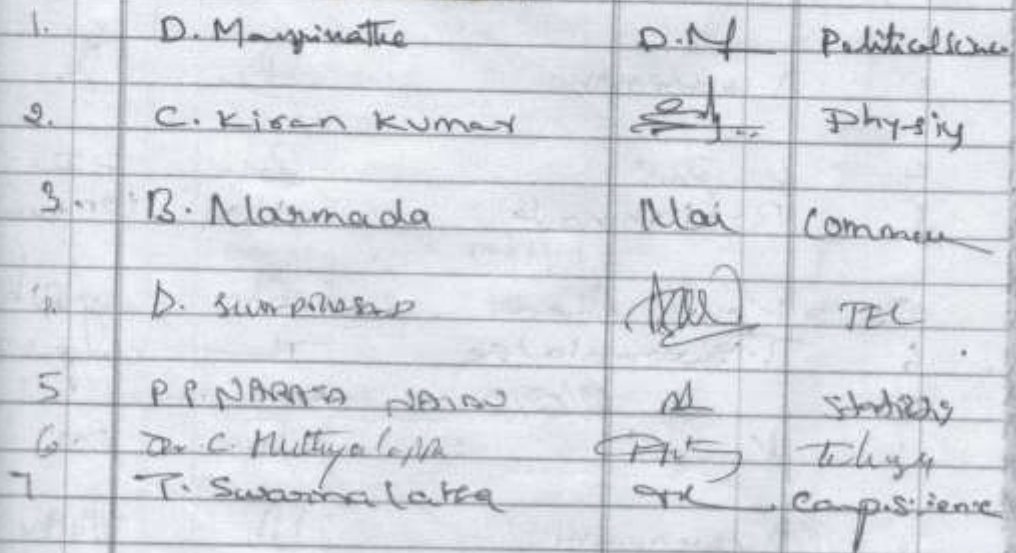 1. D. Manjinatha D.M Politicalscience
2. C. Kiran Kumar Physis
3. B. Narmada Nai Commerce
4. D. TEC
5 P P. NARASA NAIDU Statistics
6. Dr C. Muthyalappa Telugu
7 T. Swarna latha Comp.Science